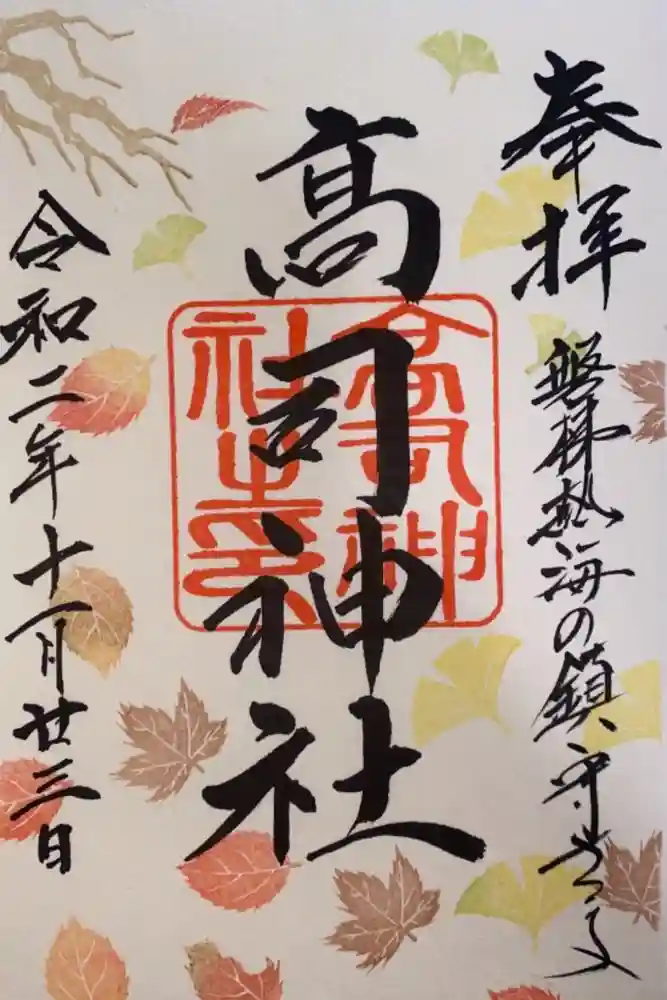 奉拝
磐梯熱海の鎮守さま
高司神社
高司神社之印
令和二年十一月廿三日